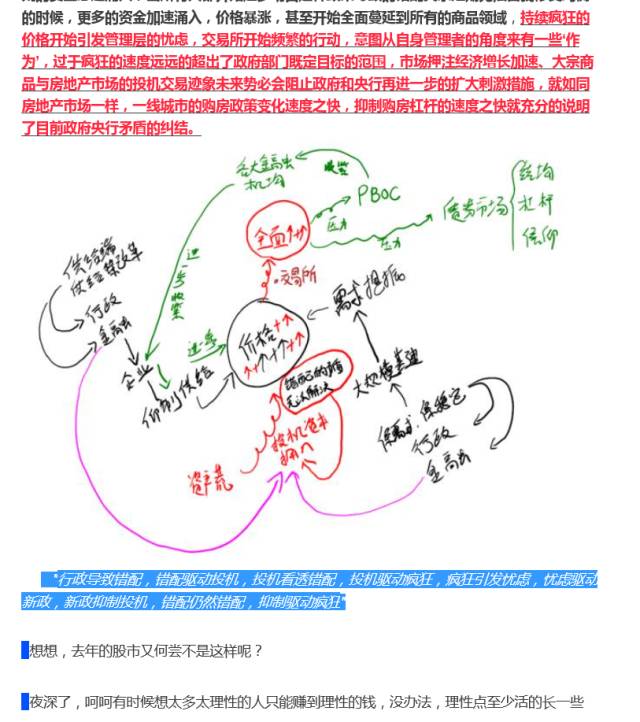 的时候，更多的资金加速涌入，价格暴涨，甚至开始全面蔓延到所有的商品领域，持续疯狂的
价格开始引发管理层的忧虑，交易所开始频繁的行动，意图从自身管理者的角度来有一些‘作
为’，过于疯狂的速度远远的超出了政府部门既定目标的范围，市场押注经济增长加速、大宗商
品与房地产市场的投机交易迹象未来势必会阻止政府和央行再进一步的扩大刺激措施，就如同
房地产市场一样，一线城市的购房政策变化速度之快，抑制购房杠杆的速度之快就充分的说明
了目前政府央行矛盾的纠结。
各大金融
机构
收紧
PBOC
结构
杠杆
信仰
债券市场
全面
压力
压力
交易所
供给端
行政
金融
企业
抑制供给
价格
需求
大规模基建
无法解决
保需求、保稳定
行政
金融
投机资本
涌入
资产荒
“行政导致错配，错配驱动投机，投机看透错配，投机驱动疯狂，疯狂引发忧虑，忧虑驱动
新政，新政抑制投机，错配仍然错配，抑制驱动疯狂”
想想，去年的股市又何尝不是这样呢？
夜深了，呵呵有时候想太多太理性的人只能赚到理性的钱，没办法，理性点至少活的长一些